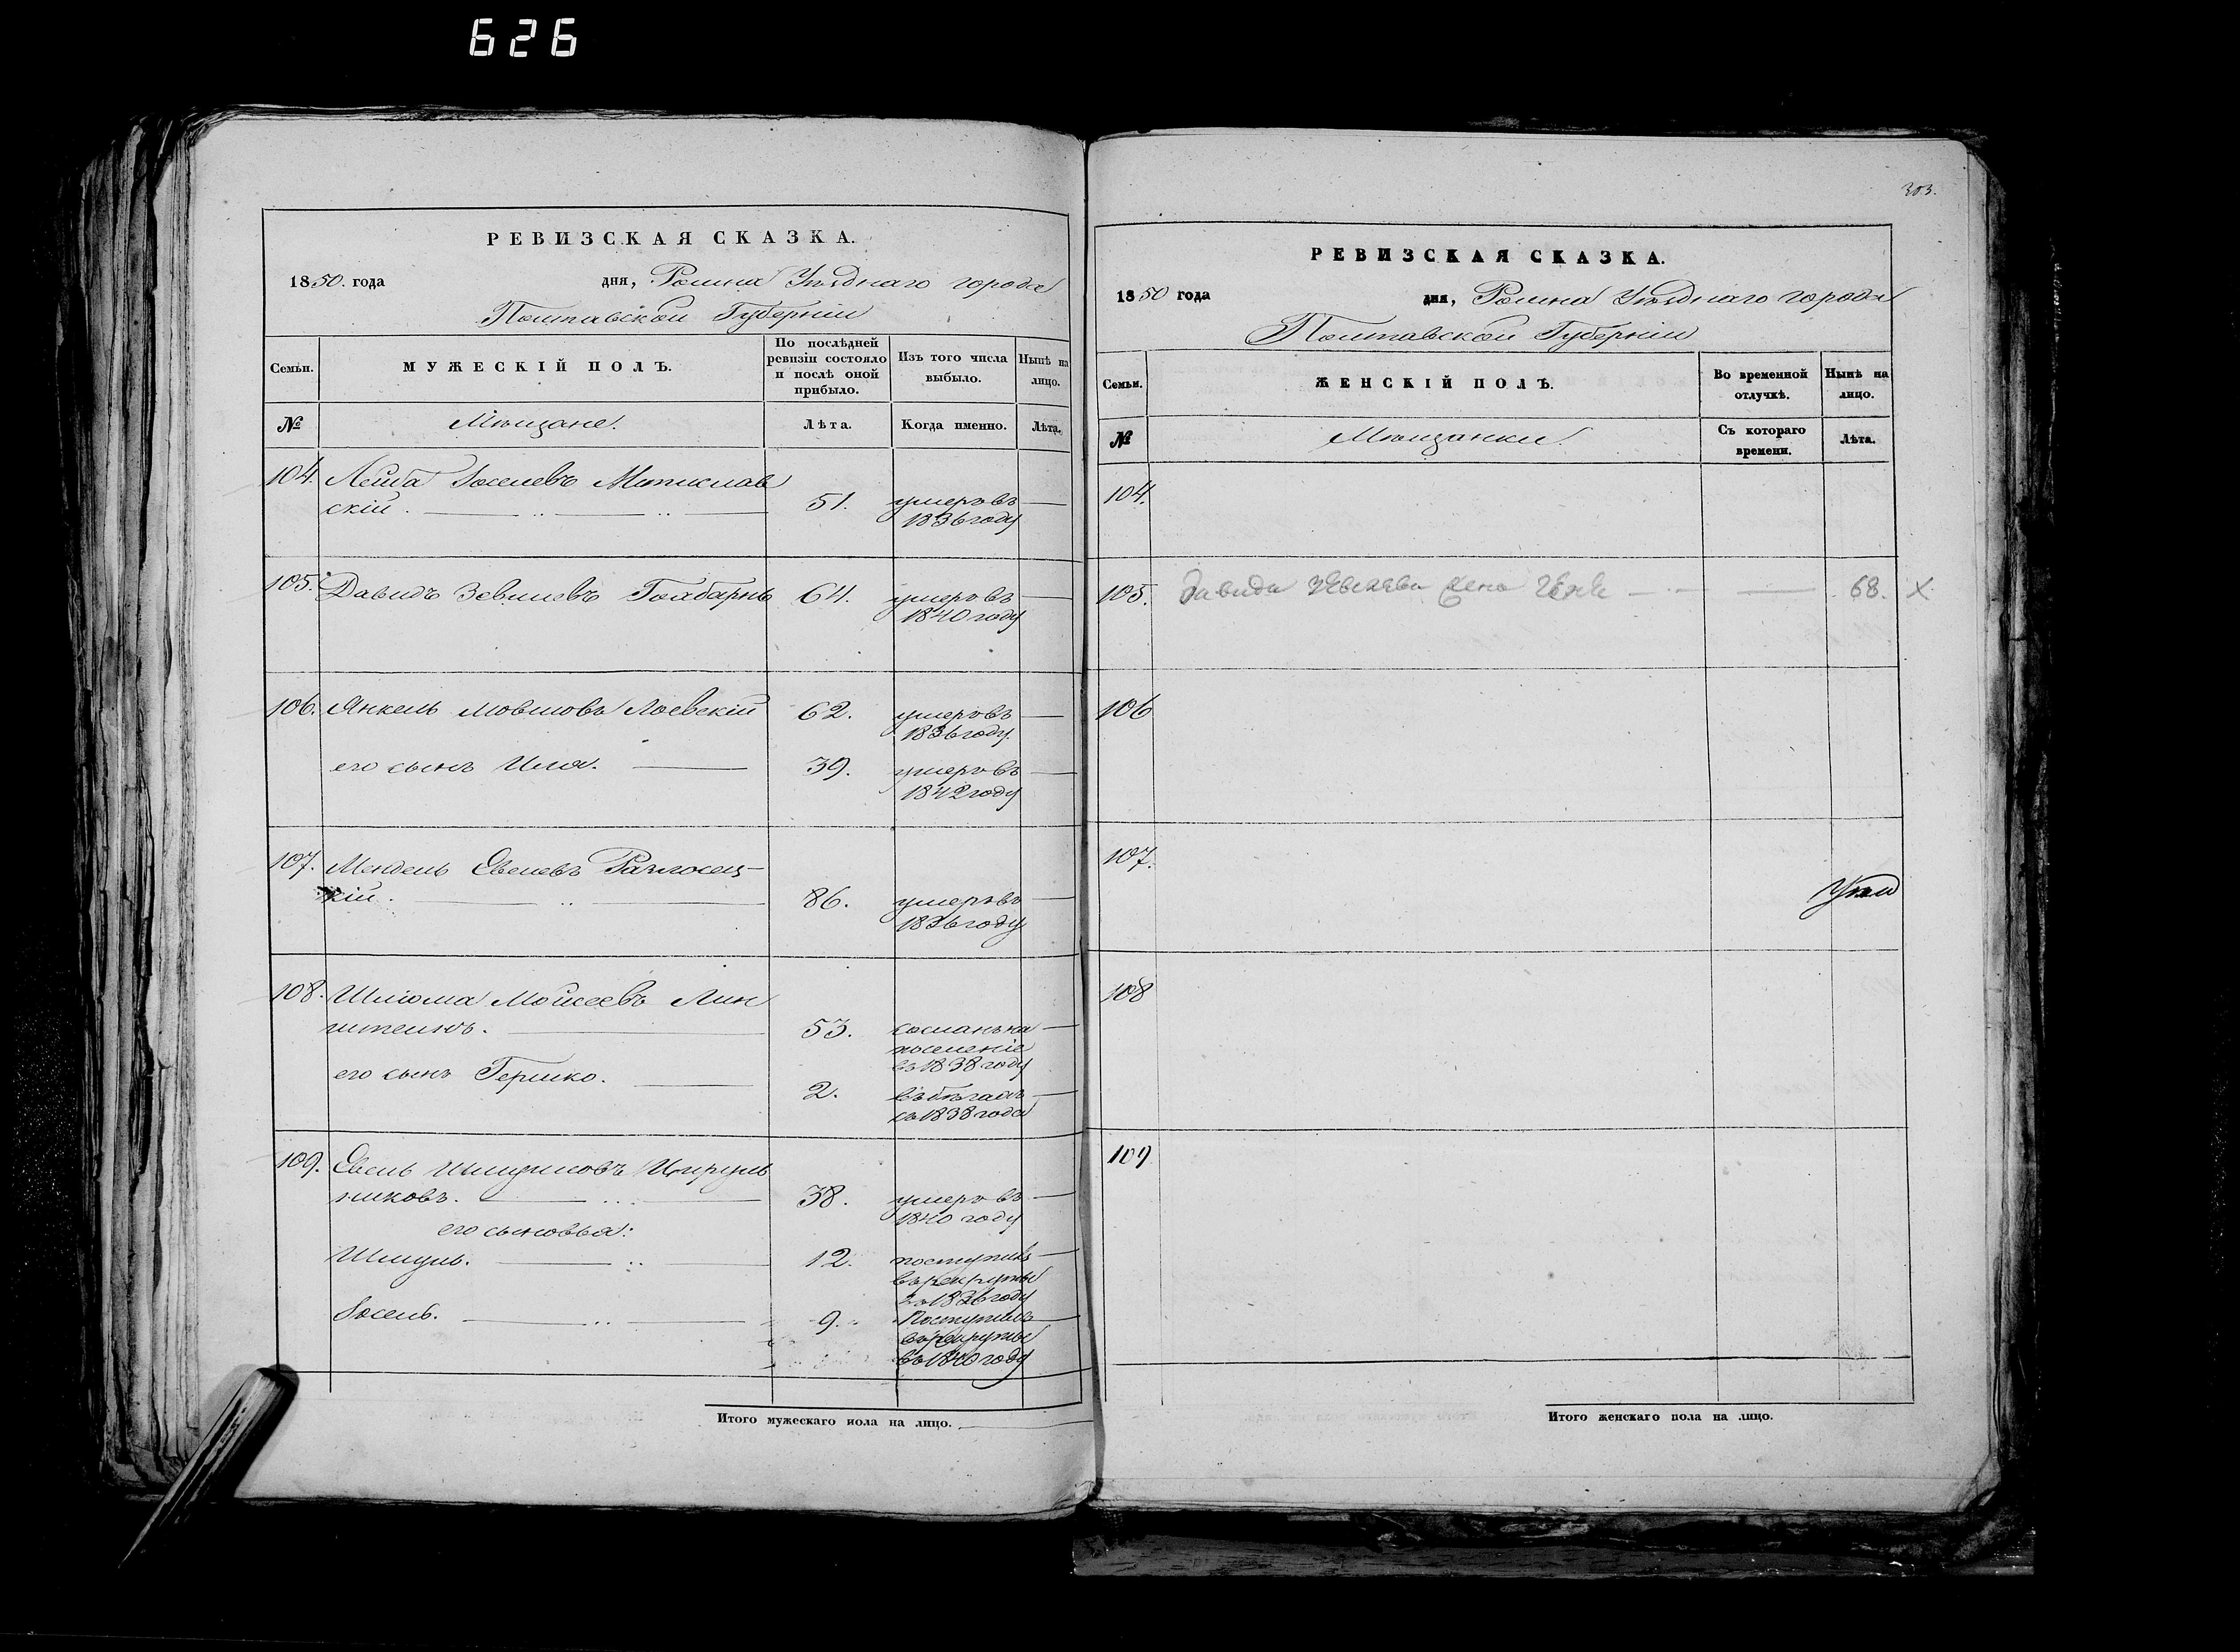 626
РЕВИЗСКАЯ СКАЗКА.
1850. года дня, Ромна Уѣзднаго города
Полтавской Губерніи
Семьи.
МУЖЕСКІЙ ПОЛЪ.
По послѣдней ревизіи состояло и послѣ оной прибыло.
Изъ того числа выбыло.
Нынѣ на лицо.
№
Мѣщане.
Лѣта.
Когда именно.
Лѣта.
104. Лейба Іоселевъ Мстислав
скій. 51. умеръ въ
1836 году
105. Давидъ Зевелевъ 64. умеръ въ
1840 году
106. Янкель Мовшовъ Лоевскій 62. умеръ въ
1836 году.
его сынъ 39. умеръ въ
1842 году
107. Мендель
кій. 86. умеръ въ
1836 году
108. Шліома Мойсеевъ Лин
штейнъ. 53. сосланъ на
поселеніе
въ 1838 году
его сынъ Гершко. 2. въ бѣгахъ
съ 1838 года
109. Евель Шмуйловъ Цируль
никовъ. 38. умеръ въ
1840 году
его сыновья:
Шмуль. 12. поступилъ
въ рекруты
въ 1836 году
Іосель. 9. Поступилъ
въ рекруты
въ 1840 году
Итого мужескаго пола на лицо.
303.
РЕВИЗСКАЯ СКАЗКА.
1850 года дня, Ромна Уѣзднаго города
Полтавской Губерніи
Семьи.
ЖЕНСКІЙ ПОЛЪ.
Во временной отлучкѣ.
Нынѣ на лицо.
№
Мѣщанки.
Съ котораго времени.
Лѣта.
104.
105. Давида жена 68. X
106
107.
108
109
Итого женскаго пола на лицо.